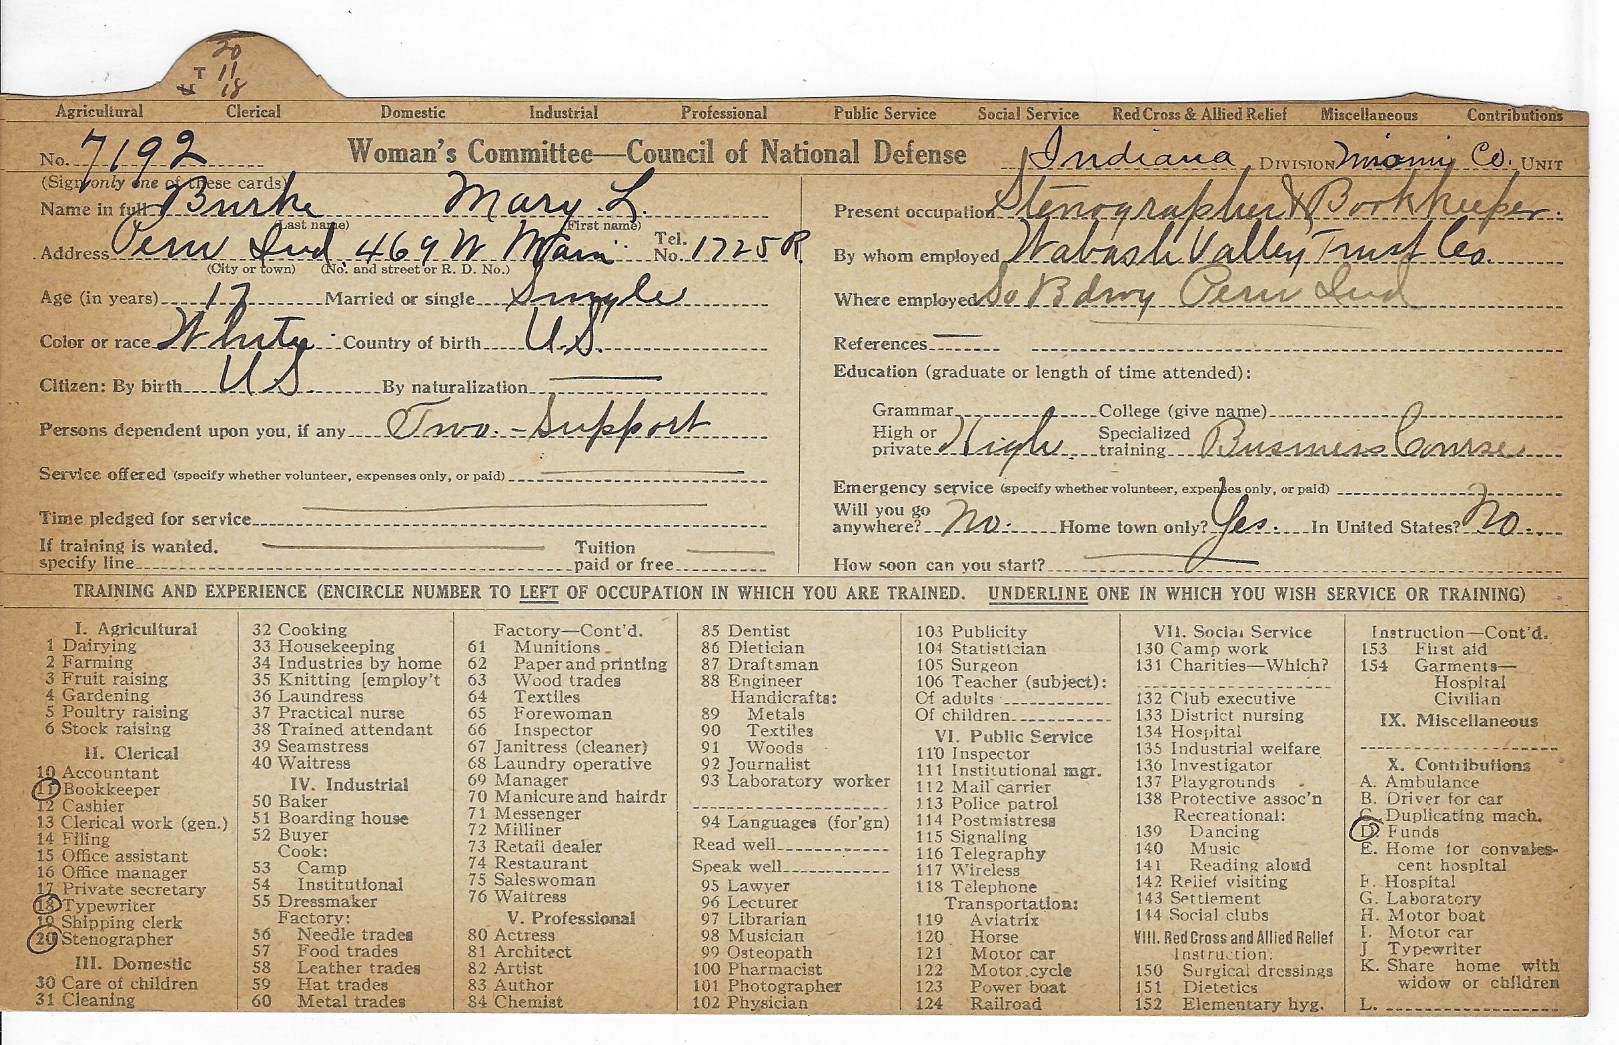 20
T 11
18
Agricultural Clerical Domestic Industrial Professional Public Service Social Service Red Cross & Allied Relief Miscellaneous Contributions
No. 7192 Woman's Committee—Council of National Defense Indiana DIVISION Miami Co. UNIT
(Sign only one of these cards)
Name in full Burke Mary L.
(Last name) (First name)
Address Peru Ind. 469 W Main Tel. No. 1725 R.
(City or town) (No. and street or R. D. No.)
Age (in years) 17 Married or single Single
Color or race White Country of birth U.S.
Citizen: By birth US. By naturalization
Persons dependent upon you, if any Two. - Support
Service offered (specify whether volunteer, expenses only, or paid)
Time pledged for service
If training is wanted. specify line Tuition paid or free
Present occupation Stenographer & Bookkeeper.
By whom employed Wabash Valley Trust Co.
Where employed So Bdwy Peru Ind
References
Education (graduate or length of time attended):
Grammar College (give name)
High or private High. Specialized training Business Course
Emergency service (specify whether volunteer, expenses only, or paid)
Will you go anywhere? No. Home town only? Yes. In United States? No.
How soon can you start?
TRAINING AND EXPERIENCE (ENCIRCLE NUMBER TO LEFT OF OCCUPATION IN WHICH YOU ARE TRAINED. UNDERLINE ONE IN WHICH YOU WISH SERVICE OR TRAINING)
I. Agricultural
1 Dairying
2 Farming
3 Fruit raising
4 Gardening
5 Poultry raising
6 Stock raising
II. Clerical
10 Accountant
11 Bookkeeper
12 Cashier
13 Clerical work (gen.)
14 Filing
15 Office assistant
16 Office manager
17 Private secretary
18 Typewriter
19 Shipping clerk
20 Stenographer
III. Domestic
30 Care of children
31 Cleaning
32 Cooking
33 Housekeeping
34 Industries by home
35 Knitting [employ't
36 Laundress
37 Practical nurse
38 Trained attendant
39 Seamstress
40 Waitress
IV. Industrial
50 Baker
51 Boarding house
52 Buyer
Cook:
53 Camp
54 Institutional
55 Dressmaker
Factory:
56 Needle trades
57 Food trades
58 Leather trades
59 Hat trades
60 Metal trades
Factory—Cont'd.
61 Munitions
62 Paper and printing
63 Wood trades
64 Textiles
65 Forewoman
66 Inspector
67 Janitress (cleaner)
68 Laundry operative
69 Manager
70 Manicure and hairdr
71 Messenger
72 Milliner
73 Retail dealer
74 Restaurant
75 Saleswoman
76 Waitress
V. Professional
80 Actress
81 Architect
82 Artist
83 Author
84 Chemist
85 Dentist
86 Dietician
87 Draftsman
88 Engineer
Handicrafts:
89 Metals
90 Textiles
91 Woods
92 Journalist
93 Laboratory worker
94 Languages (for'gn)
Read well
Speak well
95 Lawyer
96 Lecturer
97 Librarian
98 Musician
99 Osteopath
100 Pharmacist
101 Photographer
102 Physician
103 Publicity
104 Statistician
105 Surgeon
106 Teacher (subject):
Of adults
Of children
VI. Public Service
110 Inspector
111 Institutional mgr.
112 Mail carrier
113 Police patrol
114 Postmistress
115 Signaling
116 Telegraphy
117 Wireless
118 Telephone
Transportation:
119 Aviatrix
120 Horse
121 Motor car
122 Motor cycle
123 Power boat
124 Railroad
VII. Social Service
130 Camp work
131 Charities—Which?
132 Club executive
133 District nursing
134 Hospital
135 Industrial welfare
136 Investigator
137 Playgrounds
138 Protective assoc'n
Recreational:
139 Dancing
140 Music
141 Reading aloud
142 Relief visiting
143 Settlement
144 Social clubs
VIII. Red Cross and Allied Relief
Instruction:
150 Surgical dressings
151 Dietetics
152 Elementary hyg.
Instruction—Cont'd.
153 First aid
154 Garments—
Hospital
Civilian
IX. Miscellaneous
X. Contributions
A. Ambulance
B. Driver for car
C. Duplicating mach.
D. Funds
E. Home for convales-
cent hospital
F. Hospital
G. Laboratory
H. Motor boat
I. Motor car
J. Typewriter
K. Share home with
widow or children
L.